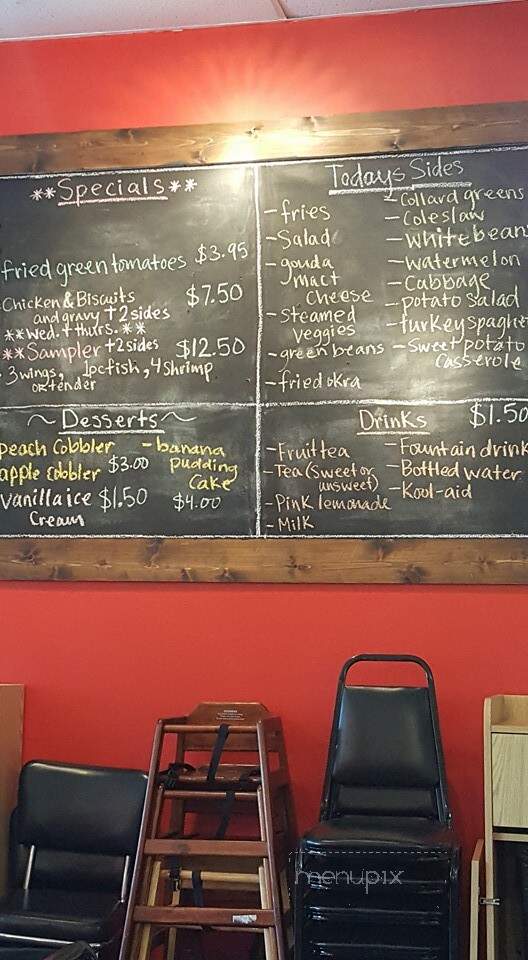 **Specials**
fried green tomatoes $3.95
Chicken & Biscuits $7.50
and gravy +2 sides
**Wed. + thurs.**
**Sampler +2 sides $12.50
3 wings, 1pc fish, 4 shrimp
or tender
Todays Sides
- fries
- Salad
- gouda
mact
Cheese
- steamed
veggies
- green beans
- fried okra
- Collard greens
- Coleslaw
- white beans
- watermelon
- Cabbage
- potato salad
- turkey spaghe
- Sweet potato
Casserole
~ Desserts ~
peach Cobbler
apple Cobbler $3.00
vanilla ice $1.50
Cream
- banana
pudding
Cake
$4.00
Drinks $1.50
- Fruit tea
- Tea (Sweet or
unsweet)
- Pink lemonade
- Milk
- Fountain drink
- Bottled water
- Kool-aid
menupix